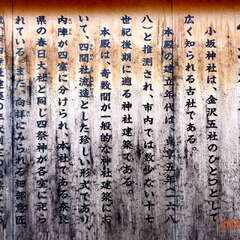 小坂神社は、金沢五社のひとつとして
広く知られる古社である。
本殿の建立年代は、貞享五年（一六八
八）と推測され、市内では数少ない十七
世紀後期に遡る神社建築である。
本殿は奇数間が一般的な神社建築にお
いて、四間社流造といった珍しい形式であり、
内陣が四室に分けられ、本社である奈良
県の春日大社と同じ四祭神が各室に祀ら
れている。また、向拝にみられる細部意匠